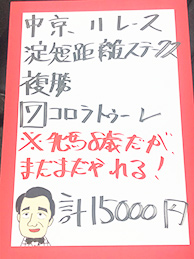 中京11レース
淀短距離ステークス
複勝
7コロラトゥーレ
※牝馬8歳だが、
まだまだやれる!
計15000円